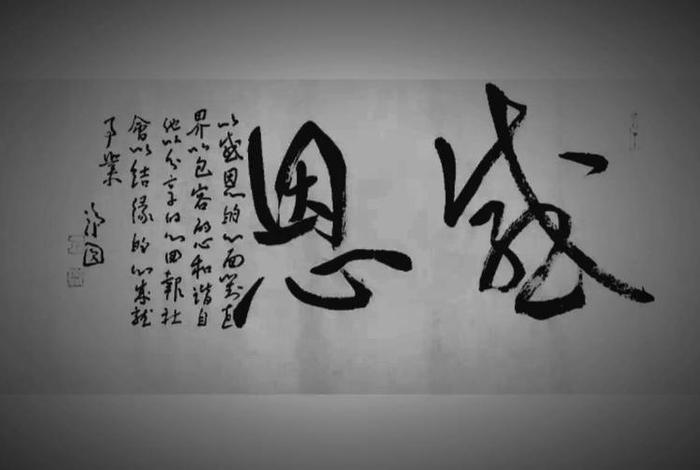 感恩
以感恩的心面對世
界以包容的心和諧自
他以分享的心回報社
會以結緣的心成就
事業